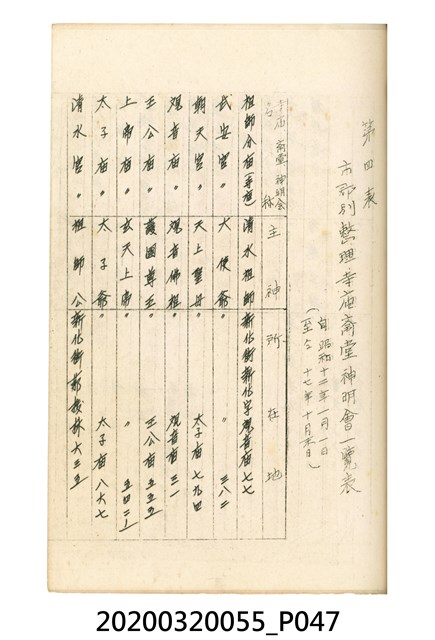 第四表
市郡別整理寺庙齋堂神明會一覽表
(自昭和十二年一月一日
至仝十七年十月末日)
寺庙齋堂神明会名称 主神 所在地
祖師合庙(寺庙) 清水祖師 新化街新化字觀音庙七七
武安宮〃 大使爺〃 〃 三八二
朝天宮〃 天上聖母〃 太子庙七九四
观音庙〃 观音佛祖〃 观音庙三一
王公庙〃 護國尊王〃 王公庙五五三
上帝庙〃 玄天上帝〃 〃 五四二ノ一
太子庙〃 太子爺〃 太子庙八六七
清水宮〃 祖師公 新化街 六三五
20200320055_P047